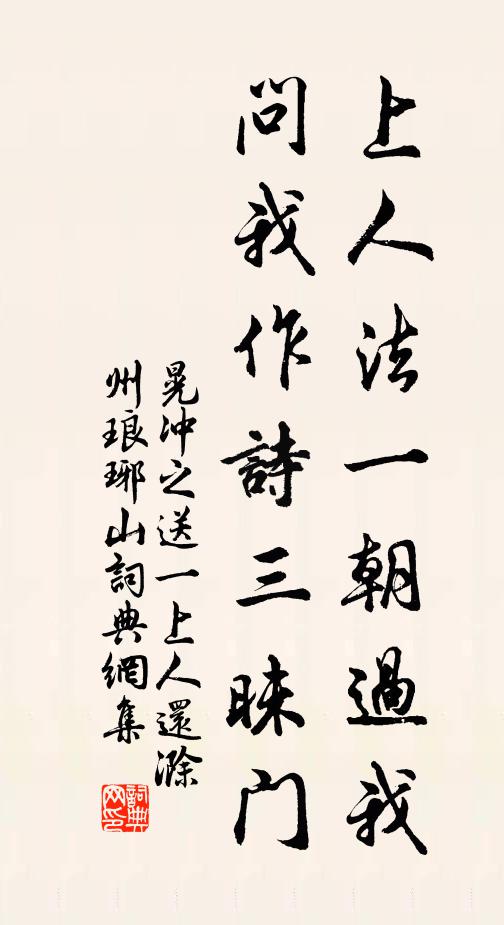 上人法一朝過我
問我作詩三昧門
晃沖之送一上人還滁
州琅琊山詞典網集
詞典
网印